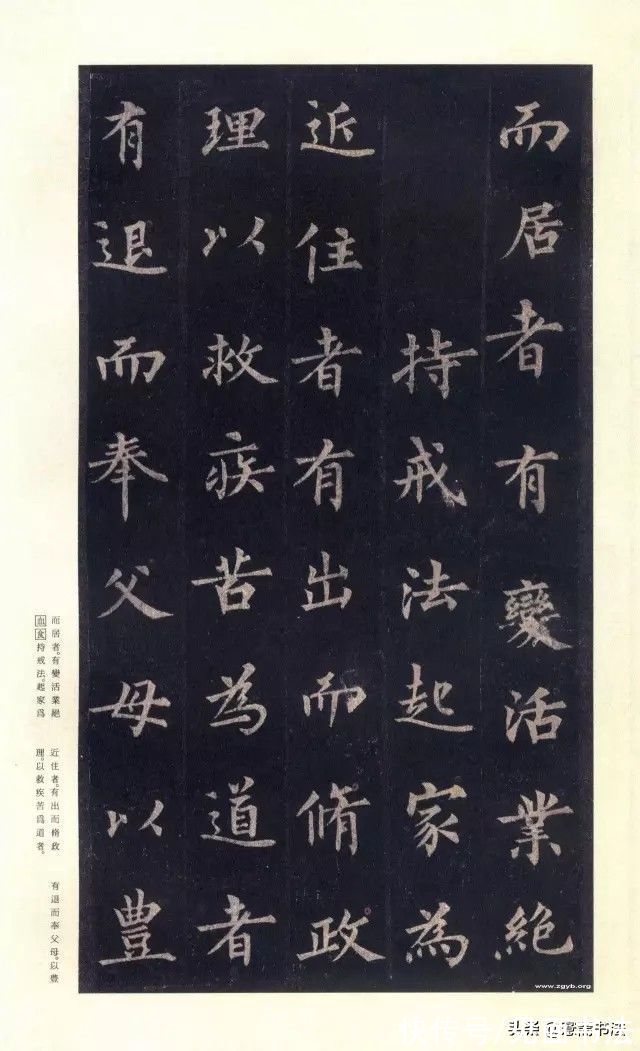 而居者有變活業絕
持戒法起家為
近住者有出而脩政
理以救疾苦為道者
有退而奉父母以豊
而居者。有變活業絕
血食持戒法。起家爲
近住者。有出而脩政
理。以救疾苦爲道者。
有退而奉父母。以豊
www.zgyb.org